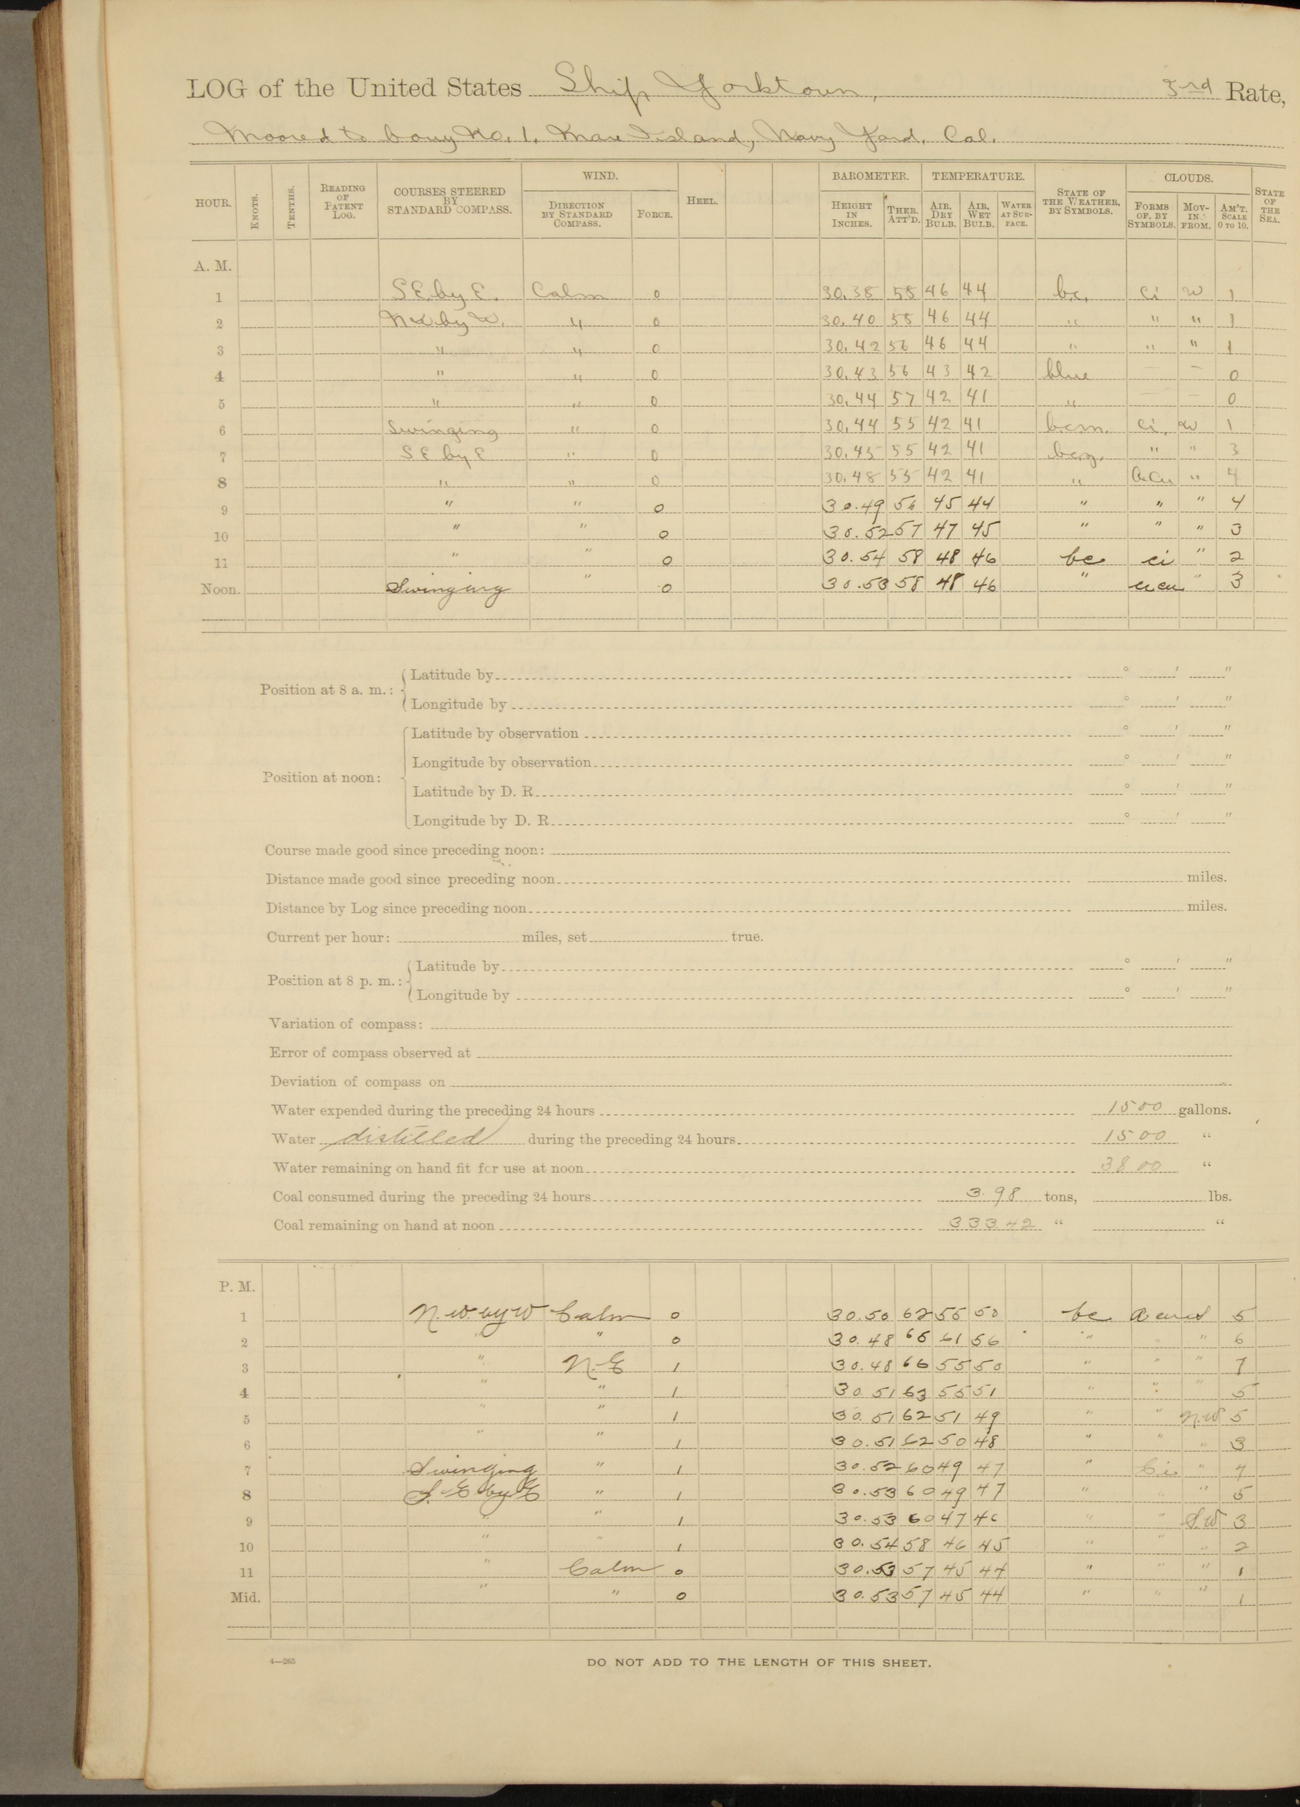 LOG of the United States Ship Yorktown, 3rd Rate,
Moored to bouy No. 1. Mare Island, Navy Yard, Cal.
HOUR. KNOTS. TENTHS. READING OF PATENT LOG. COURSES STEERED BY STANDARD COMPASS. WIND. DIRECTION BY STANDARD COMPASS. FORCE. HEEL. BAROMETER. HEIGHT IN INCHES. THER. ATT'D. TEMPERATURE. AIR, DRY BULB. AIR, WET BULB. WATER AT SURFACE. STATE OF THE WEATHER, BY SYMBOLS. CLOUDS. FORMS OF, BY SYMBOLS. MOVING FROM. AM'T. SCALE 0 TO 10. STATE OF THE SEA.
A. M.
1 SE by E. Calm 0 30.38 55 46 44 bc. ci w 1
2 NW by W. " 0 30.40 55 46 44 " " " 1
3 " " 0 30.42 56 46 44 " " " 1
4 " " 0 30.43 56 43 42 blue — — 0
5 " " 0 30.44 57 42 41 " — — 0
6 Swinging " 0 30.44 55 42 41 b.c.m. ci. w 1
7 SE by E " 0 30.45 55 42 41 " " 3
8 " " 0 30.48 55 42 41 " " 4
9 " " 0 30.49 56 45 44 " " " 4
10 " " 0 30.52 57 47 45 " " " 3
11 " " 0 30.54 58 48 46 bc ci " 2
Noon. Swinging " 0 30.53 58 48 46 " ci cu " 3
Position at 8 a. m.: Latitude by ° ' "
Longitude by ° ' "
Position at noon: Latitude by observation ° ' "
Longitude by observation ° ' "
Latitude by D. R. ° ' "
Longitude by D. R. ° ' "
Course made good since preceding noon:
Distance made good since preceding noon miles.
Distance by Log since preceding noon miles.
Current per hour: miles, set true.
Position at 8 p. m.: Latitude by ° ' "
Longitude by ° ' "
Variation of compass:
Error of compass observed at
Deviation of compass on
Water expended during the preceding 24 hours 1500 gallons.
Water distilled during the preceding 24 hours 1500 "
Water remaining on hand fit for use at noon 3800 "
Coal consumed during the preceding 24 hours 3.98 tons, lbs.
Coal remaining on hand at noon 333.42 " "
P. M.
1 N. W. by W Calm 0 30.50 62 55 50 bc 5
2 " " 0 30.48 65 61 56 " " " 6
3 " N. E 1 30.48 66 55 50 " " " 7
4 " " 1 30.51 63 55 51 " " " 5
5 " " 1 30.51 62 51 49 " " N.W 5
6 " " 1 30.51 62 50 48 " " " 3
7 Swinging " 1 30.52 60 49 47 " Ci " 4
8 S. E by E " 1 30.53 60 49 47 " " " 5
9 " " 1 30.53 60 47 46 " " S.W 3
10 " " 1 30.54 58 46 45 " " " 2
11 " Calm 0 30.53 57 45 44 " " " 1
Mid. " " 0 30.53 57 45 44 " " " 1
4—265 DO NOT ADD TO THE LENGTH OF THIS SHEET.